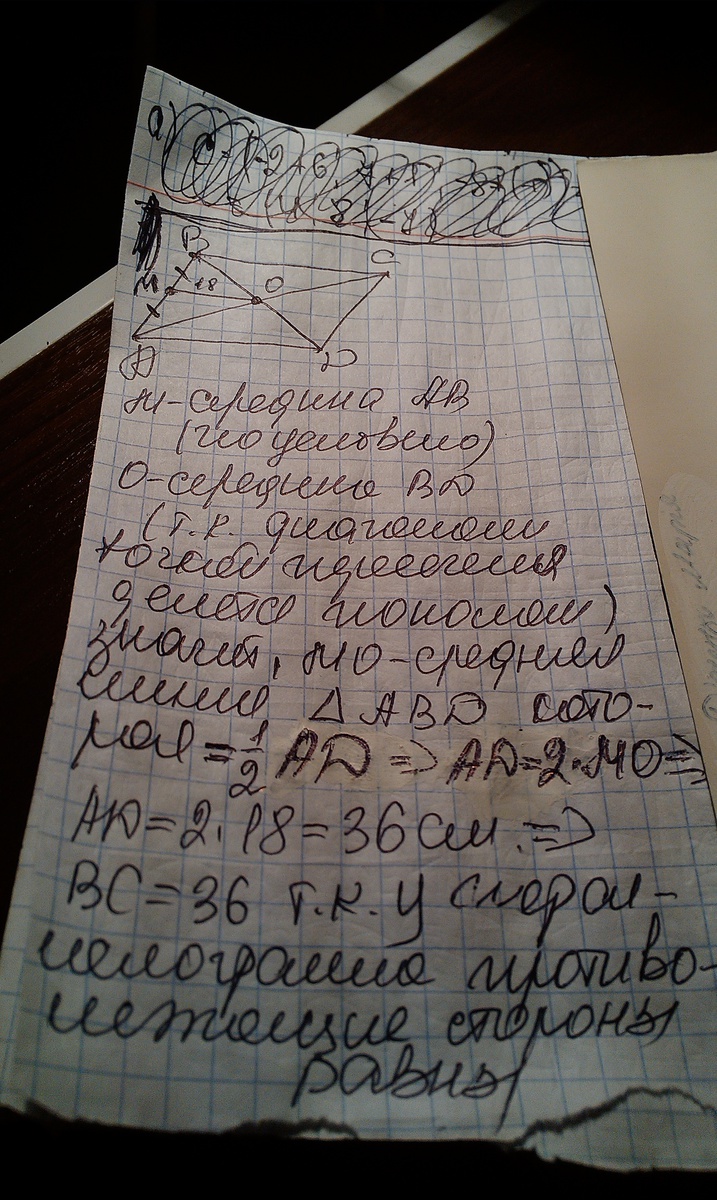 а)
B
C
M
18
O
A
D
М-середина AB
(по условию)
О-середина BD
(т.к. диагонали
точкой пересечения
делятся пополам)
значит, MO-средняя
линия △ABD кото-
рая = 1/2 AD => AD=2·MO =>
AD=2·18=36 см. =>
BC=36 т.к. у
противо-
лежащие стороны
равны